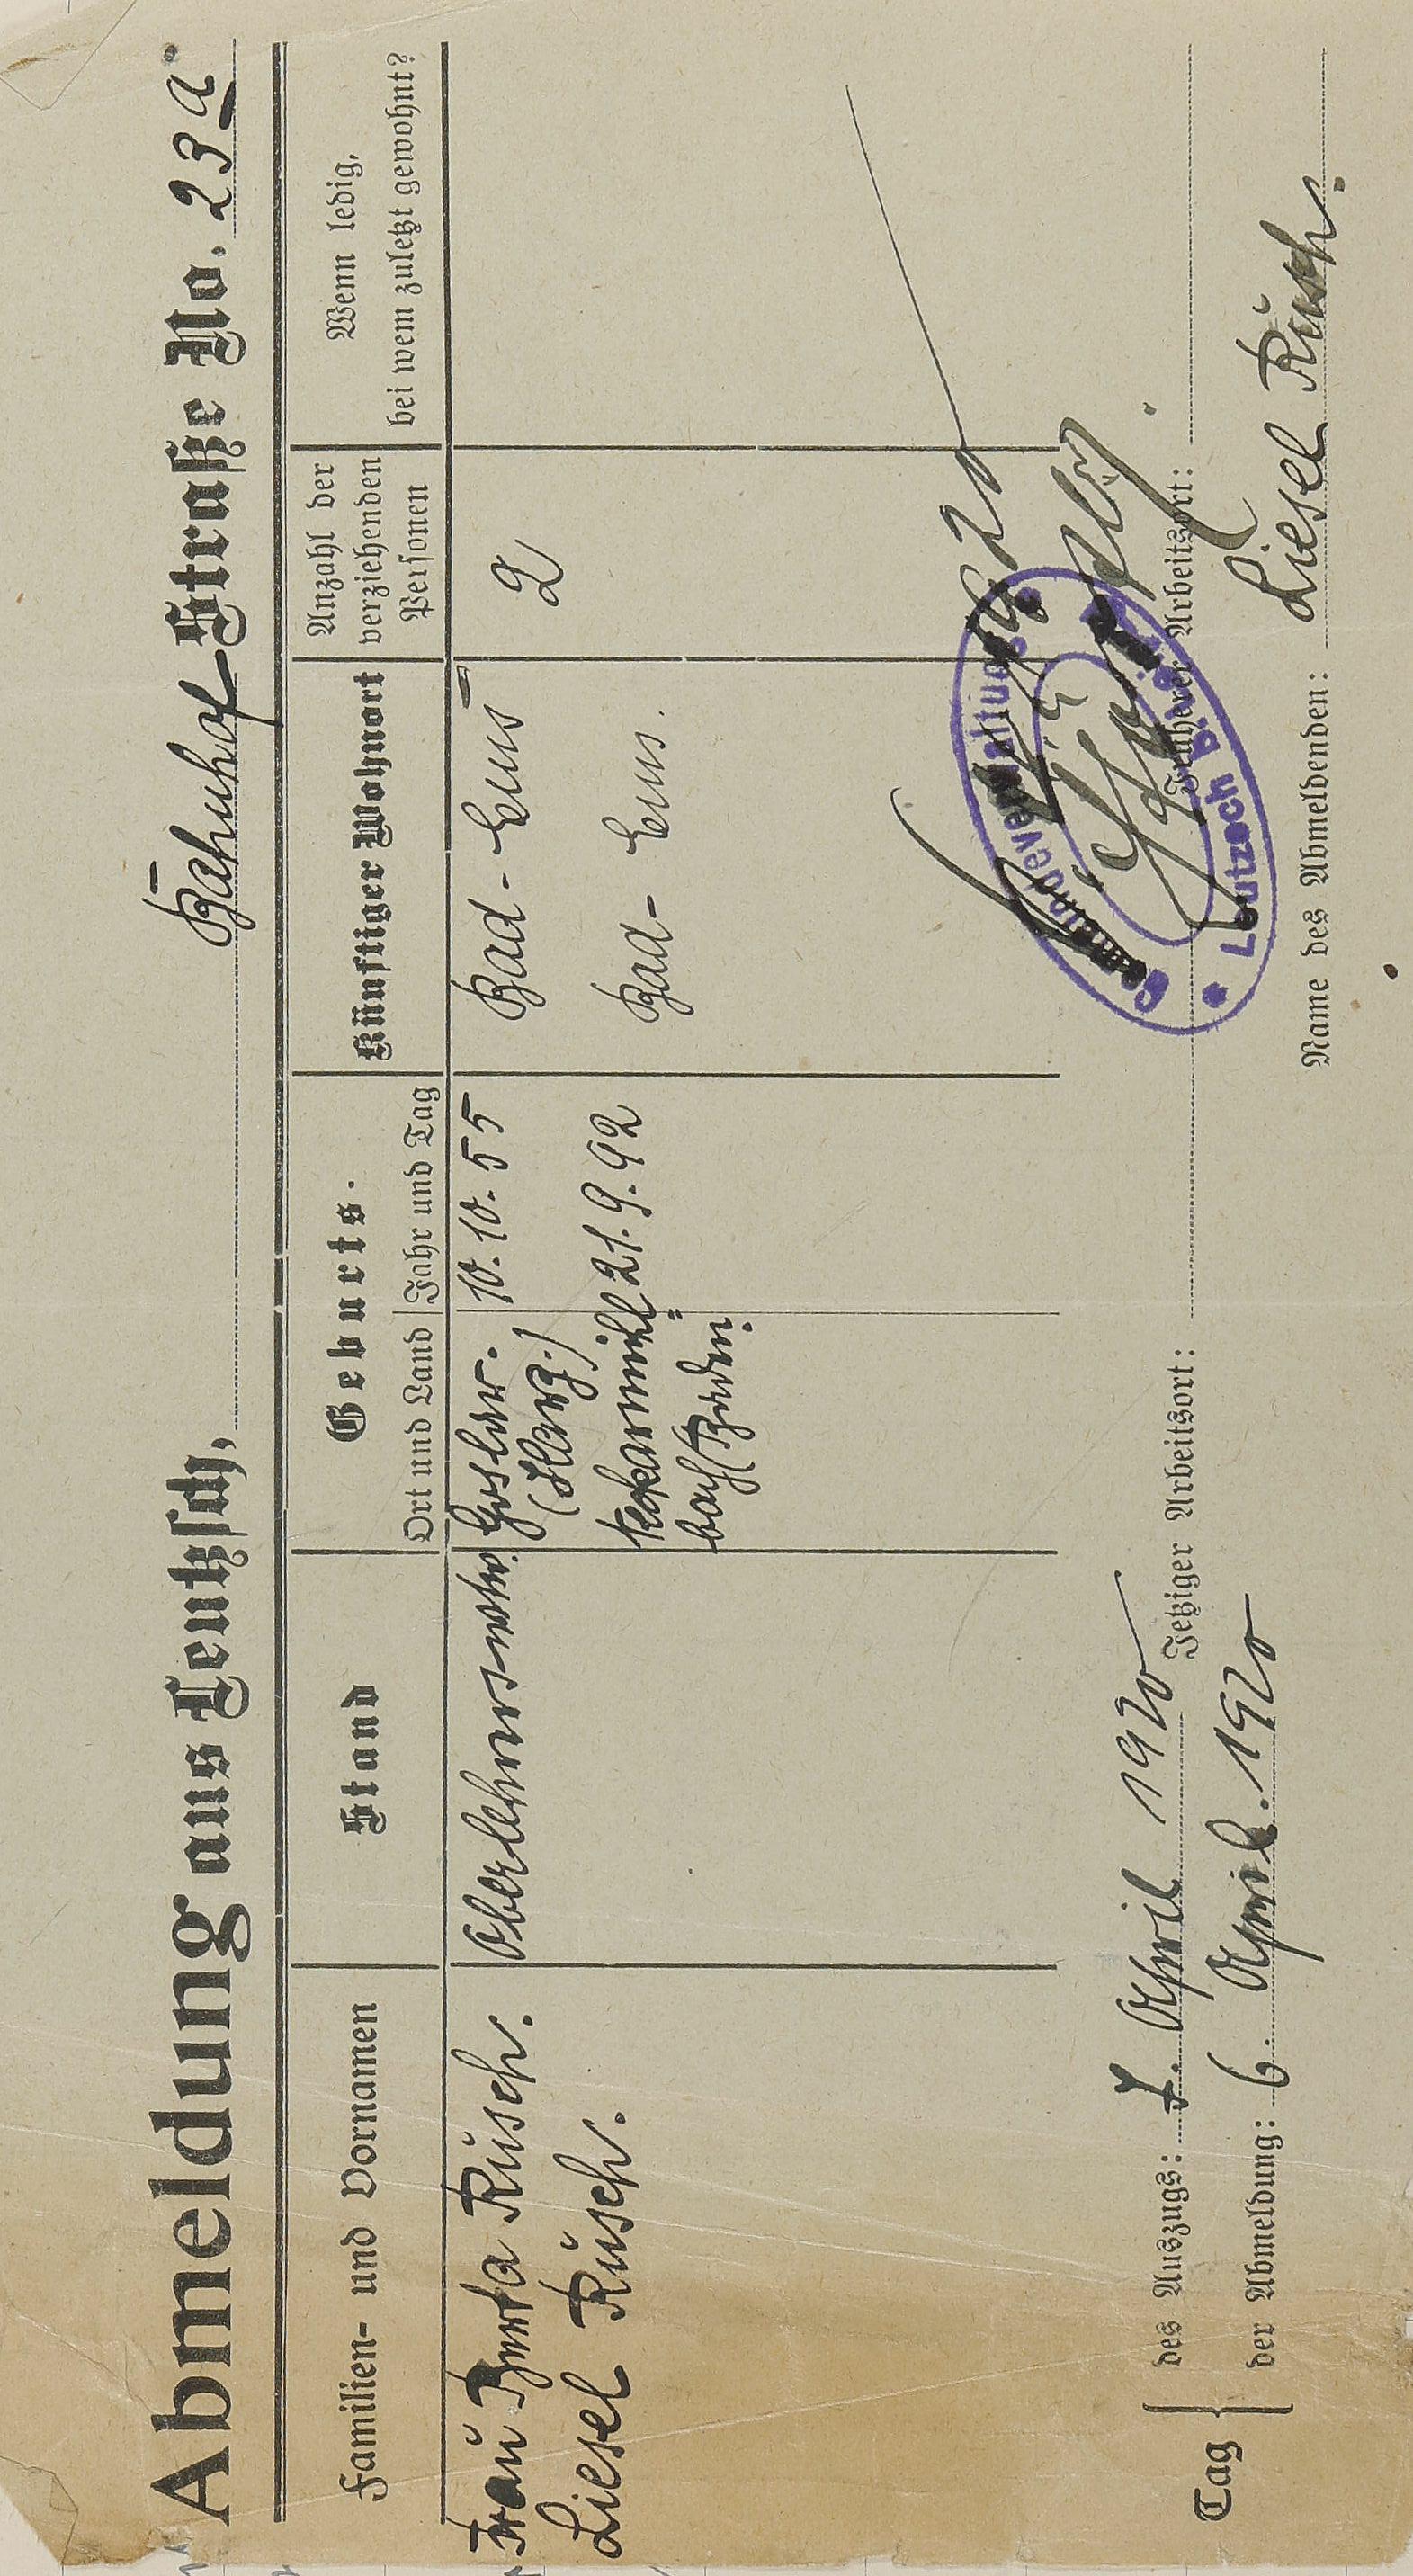 Abmeldung aus Leutzsch, Bahnhof-Straße No. 23a
Familien- und Vornamen
Stand
Geburts-
Ort und Land
Jahr und Tag
Künftiger Wohnort
Anzahl der
verziehenden
Personen
Wenn ledig,
bei wem zuletzt gewohnt?
Frau Berta Rusch. Oberlehrerswtw. Goslar. 10.10.55 Bad-Ems 2
(Harz.)
Liesel Rusch. 21.9.92 Bad-Ems.
bach/Baden.
Gemeindeverwaltung
Leutzsch b. Leipzig
20
Tag
des Auszugs: 7. April 1920
Jetziger Arbeitsort:
Früherer Arbeitsort:
der Abmeldung: 6. April. 1920
Name des Abmeldenden: Liesel Rusch.